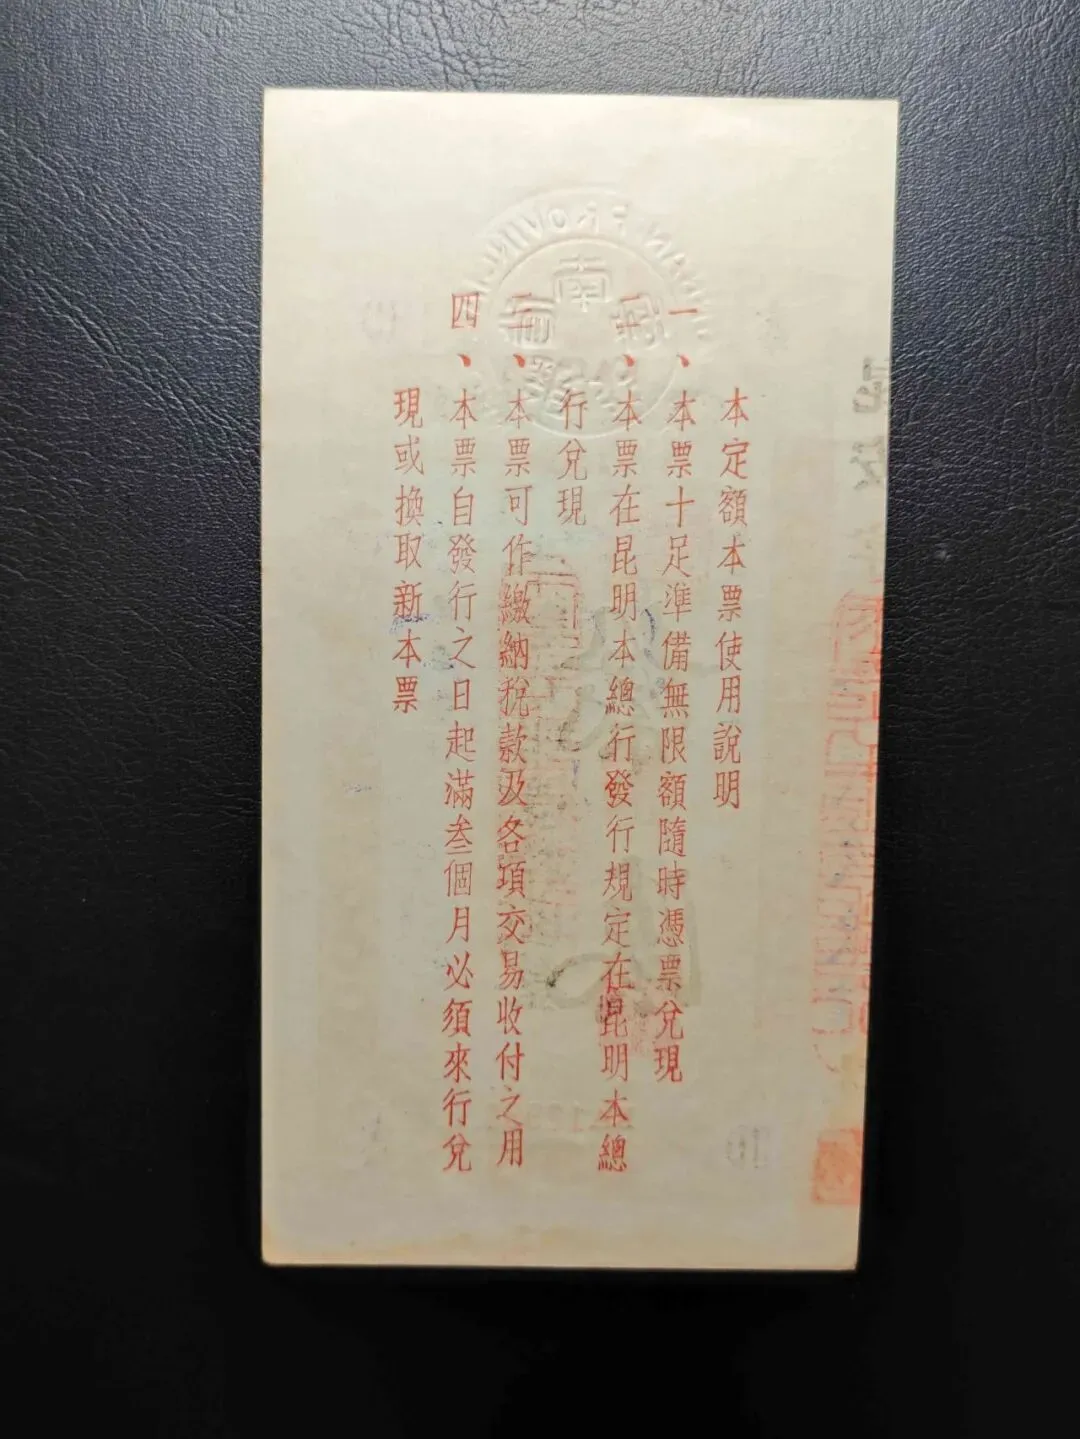 本定額本票使用說明
一、本票十足準備無限額隨時憑票兌現
二、本票在昆明本總行發行規定在昆明本總
行兌現
三、本票可作繳納稅款及各項交易收付之用
四、本票自發行之日起滿叁個月必須來行兌
現或換取新本票
南